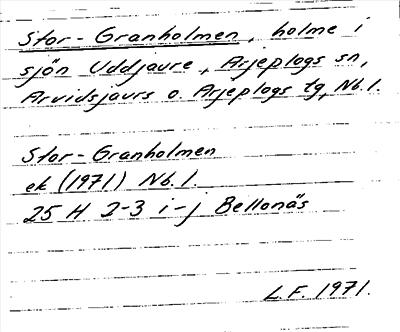 Stor-Granholmen, holme i
sjön Uddjaure, Arjeplogs sn,
Arvidsjaurs o. Arjeplogs tg, Nb.l.
Stor-Granholmen
ek (1971) Nb.l.
25 H 2-3 i-j Bellonäs
L.F. 1971.